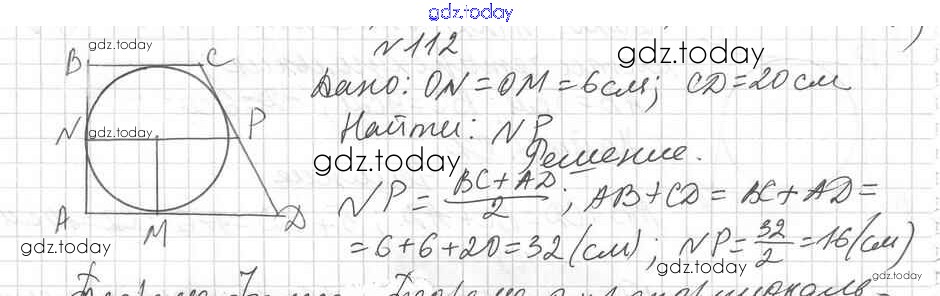 gdz.today
№112
gdz.today
gdz.today
B C
Дано: ON=OM=6см; CD=20см
N gdz.today P
Найти: NP
gdz.today
Решение.
NP = (BC+AD)/2; AB+CD = BC+AD =
A M D
gdz.today
= 6+6+20=32 (см); NP=32/2=16(см)
gdz.today
gdz.today